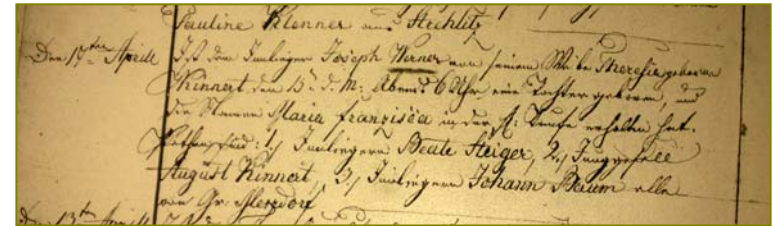 Pauline Klenner aus Strehlitz
Den 17ten Aprill Ist dem Innlieger Joseph Werner von seinem Weibe Theresia geborene
Kinnert den 15 d. M. Abends 6 Uhr eine Tochter geboren, und
die Namen Maria Franziska in der h. Taufe erhalten hat.
Pathen sind: 1., Innliegerin Beate Steiger, 2., Junggeselle
August Kinnert, 3., Innliegern Johann Baum alle
von Gr.